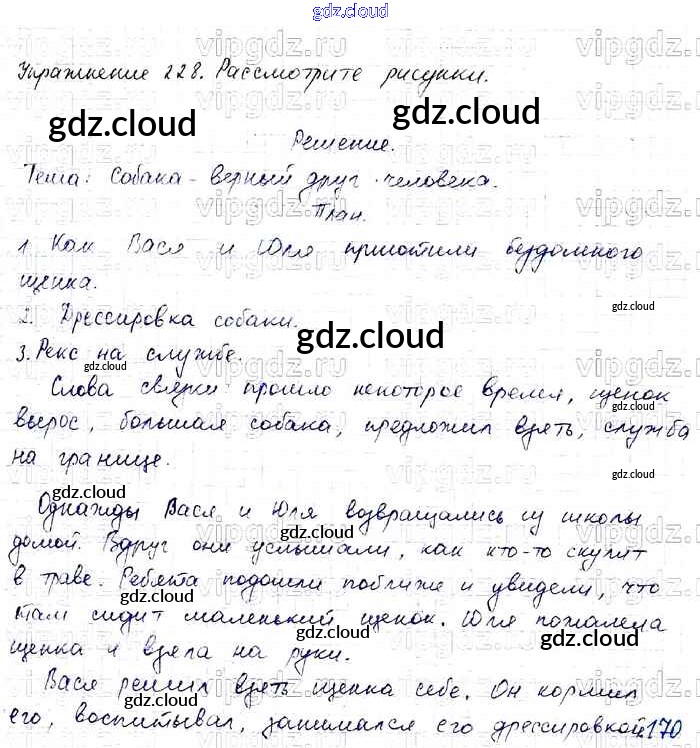 gdz.cloud
Упражнение 228. Рассмотрите рисунки.
gdz.cloud gdz.cloud
Решение.
Тема: Собака - верный друг человека.
План.
1. Как Вася и Юля приютили бездомного
щенка.
gdz.cloud
2. Дрессировка собаки.
gdz.cloud
3. Рекс на службе.
gdz.cloud
Слова связки: прошло некоторое время, щенок
gdz.cloud
вырос, большая собака, предложил взять, служба
на границе.
gdz.cloud
gdz.cloud
Однажды Вася и Юля возвращались из школы
gdz.cloud
домой. Вдруг они услышали, как кто-то скулит
в траве. Ребята подошли поближе и увидели, что
gdz.cloud
там сидит маленький щенок. Юля пожалела
gdz.cloud gdz.cloud
щенка и взяла на руки.
Вася решил взять щенка себе. Он кормил
gdz.cloud
его, воспитывал, занимался его дрессировкой.
170